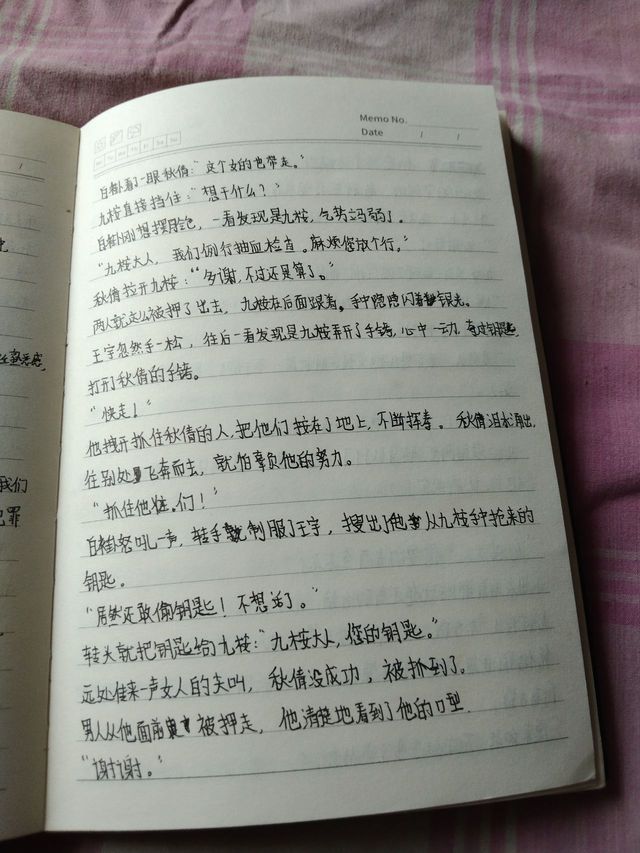 Memo No.
Date / /
Mo Tu We Th Fr Sa Su
白楚看了一眼秋倩："这个女的也带走。"
九桉直接挡住："想干什么？"
白楚刚想摆脸色，一看发现是九桉，气势都弱了。
"九桉大人，我们例行抽血检查。麻烦您放个行。"
秋倩拉开九桉："多谢，不过还是算了。"
两人就这么被押了出去，九桉在后面跟着。手中隐隐闪着银光。
王宇忽然手一松，往后一看发现是九桉弄开了手铐，心中一动，夺过钥匙
打开秋倩的手铐。
"快走！"
他拽开抓住秋倩的人，把他们按在了地上，不断挥拳。秋倩泪水涌出，
往别处飞奔而去，就怕辜负他的努力。
"抓住他们！"
白楚怒吼一声，转手就制服了王宇，搜出了他从九桉手中抢来的
钥匙。
"居然还敢偷钥匙！不想活了。"
转头就把钥匙给了九桉："九桉大人，您的钥匙。"
远处传来一声女人的尖叫，秋倩没成功，被抓到了。
男人从他面前被押走，他清楚地看到了他的口型
"谢谢。"
我们
犯罪